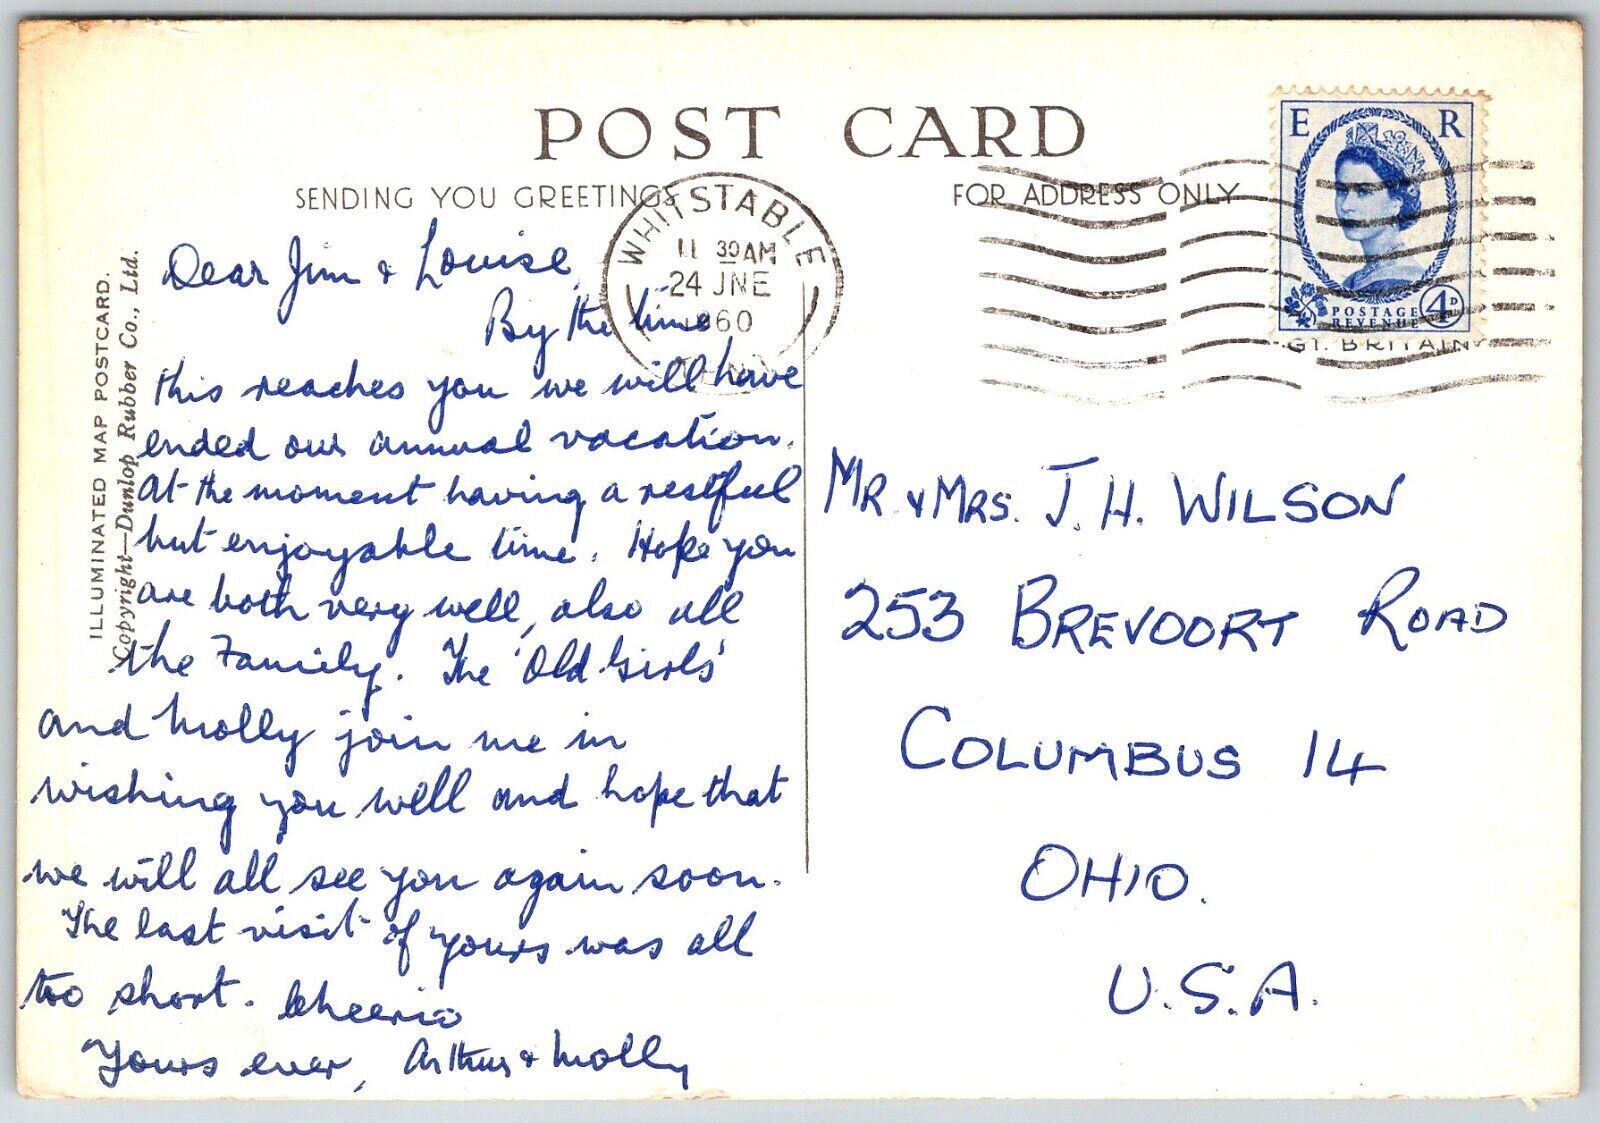 POST CARD
SENDING YOU GREETINGS
FOR ADDRESS ONLY
ILLUMINATED MAP POSTCARD.
Copyright—Dunlop Rubber Co., Ltd.
WHITSTABLE
11 30 AM
24 JNE
1960
KENT
E R
POSTAGE
REVENUE
4D
GT. BRITAIN
Dear Jim & Louise,
By the time
this reaches you we will have
ended our annual vacation.
At the moment having a restful
but enjoyable time. Hope you
are both very well, also all
the Family. The 'Old Girls'
and Molly join me in
wishing you well and hope that
we will all see you again soon.
The last visit of yours was all
too short. Cheerio
Yours ever, Arthur & Molly
MR & MRS. J. H. WILSON
253 BREVOORT ROAD
COLUMBUS 14
OHIO.
U.S.A.